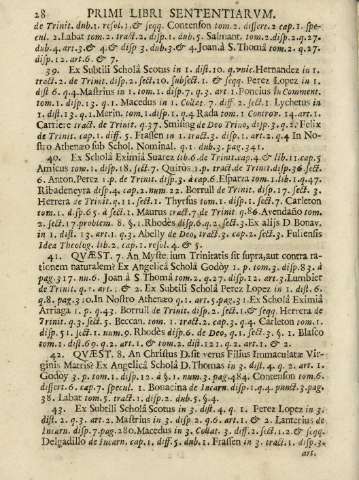 28 PRIMI LIBRI SENTENTIARVM.
de Trinit. dub.1. resol.1. & seqq. Contenson tom.2. dissert.2. cap.1. spe-
cul.2. Labat tom.2. tract.2. disp.1. dub.5. Salmant. tom.2. disp.2. q.27.
dub.4. art.3. & 4. & disp 3. dub.3. & 4. Joan.à S. Thomâ tom.2. q.27.
disp.12. art.6. & 7.
39. Ex Subtili Scholâ Scotus in 1. dist.10. q. vnic. Hernandez in 1.
tract.2. de Trinit. disp.2. sect.10. subsect.1. & seqq. Perez Lopez in 1.
dist 6. q.4. Mastrius in 1. tom.1. disp.7. q.3. art.1. Poncius in Comment.
tom.1. disp.13. q.1. Macedus in 1. Collat. 7. diff.2. sect.1. Lychetus in
1. dist.13. q.1. Merin. tom.1. disp.1. q.4 Rada tom.1. Controv. 14. art.1.
Carriere tract. de Trinit. q.37. Smiling de Deo Trino, disp.3. q.2. Felix
de Trinit. cap.1. diff.5. Frassen in 1. tract.3. disp.1. art.2. q.4 In No-
stro Athenæo sub Schol. Nominal. q.1. dub.3. pag.341.
40. Ex Scholâ Eximiâ Suarez lib.6. de Trinit. cap.4. & lib.11. cap.5
Amicus tom.1. disp.18. sect.7. Quiròs 1.p. tract. de Trinit. disp.36. sect.
6. Anton. Perez 1.p. de Trinit. disp.3. cap.6. Esparza tom.1. lib.1. q.47.
Ribadeneyra disp.4. cap.2. num 22. Borrull de Trinit. disp.17. sect.3.
Herrera de Trinit. q.11. sect.1. Thyrsus tom.1. disp.1. sect.7. Carleton
tom.1. disp.65. sect.1. Maurus tract.7. de Trinit q.86. Avendaño tom.
2. sect.17 problem. 8. §.1. Rhodes disp.6. q.2. sect.3. Ex alijs D. Bonav.
in 1. dist. 13. art.1. q.3. Abelly de Deo, tract.3. cap.2. sect.3. Fuliensis
Idea Theolog. lib.2. cap.1. resol.4. & 5.
41. QVÆST. 7. An Mysterium Trinitatis sit supra, aut contra ra-
tionem naturalem? Ex Angelicâ Scholâ Godoy 1.p. tom.3. disp.83. à
pag.317. nu.6. Joan à S Thomâ tom.2. q.27. disp.12. art.3. Lumbier
de Trinit. q.1. art.1. & 2. Ex Subtili Scholâ Perez Lopez in 1. dist.6.
q.8. pag.310. In Nostro Athenæo q.1. art.5. pag.31. Ex Scholâ Eximiâ
Arriaga 1.p. q.43. Borrull de Trinit. disp.2. sect.1. & seqq. Herrera de
Trinit. q.3. sect.5. Beccan. tom.1. tract.2. cap.3. q.4. Carleton tom.1.
disp.51. sect.1. num.9. Rhodes disp.6. de Deo, q.1. sect.3. §.1. Blasco
tom.1. dist.69. q.2. art.1. & tom.2. dist.121. q.2. art.1. & 2.
42. QVÆST. 8. An Christus D. sit verus Filius Immaculatæ Vir-
ginis Matris? Ex Angelicâ Scholâ D. Thomas in 3. dist.4. q.2. art.1.
Godoy 3.p. tom.1. disp.12. à §.1. num.3. pag.484. Contenson tom.6.
dissert.6. cap.7. specul.1. Bonacina de Incarn. disp.1. q.4. punct.3. pag.
38. Labat tom.5. tract.1. disp.2. dub.5. §.4.
43. Ex Subtili Scholâ Scotus in 3. dist.4. q.1. Perez Lopez in 3.
dist.2. q.3. art.2. Mastrius in 3. disp.2. q.6. art.1. & 2. Lanterius de
Incarn. disp.7. pag.280. Macedus in 3. Collat.3. diff.2. sect.1.2. & seqq.
Delgadillo de Incarn. cap.1. diff.5. dub.1. Frassen in 3. tract.1. disp.3.
art.